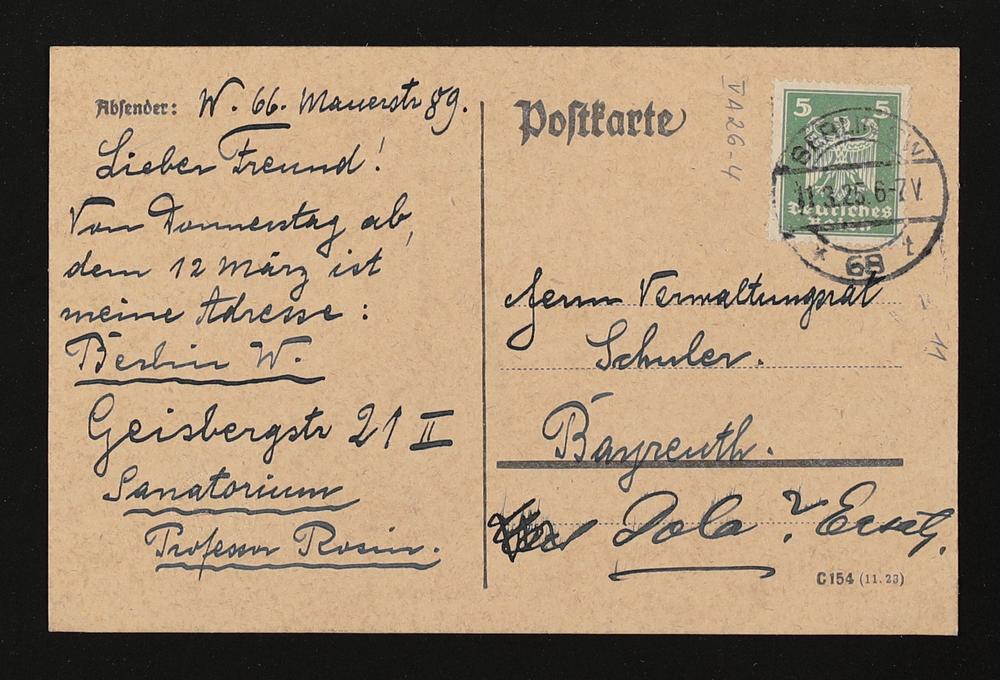 Absender: W. 66. Mauerstr 89.
Lieber Freund!
Von Donnerstag ab,
dem 12 März ist
meine Adresse:
Berlin W.
Geisbergstr 21 II
Sanatorium
Professor Rosin.
Postkarte
IV A 26-4
5 5
Deutsches
Reich
BERLIN SW
11.3.25. 6-7 V.
* 68 t
Herrn Verwaltungsrat
Schuler.
Bayreuth.
Dola?
11
C 154 (11. 23)